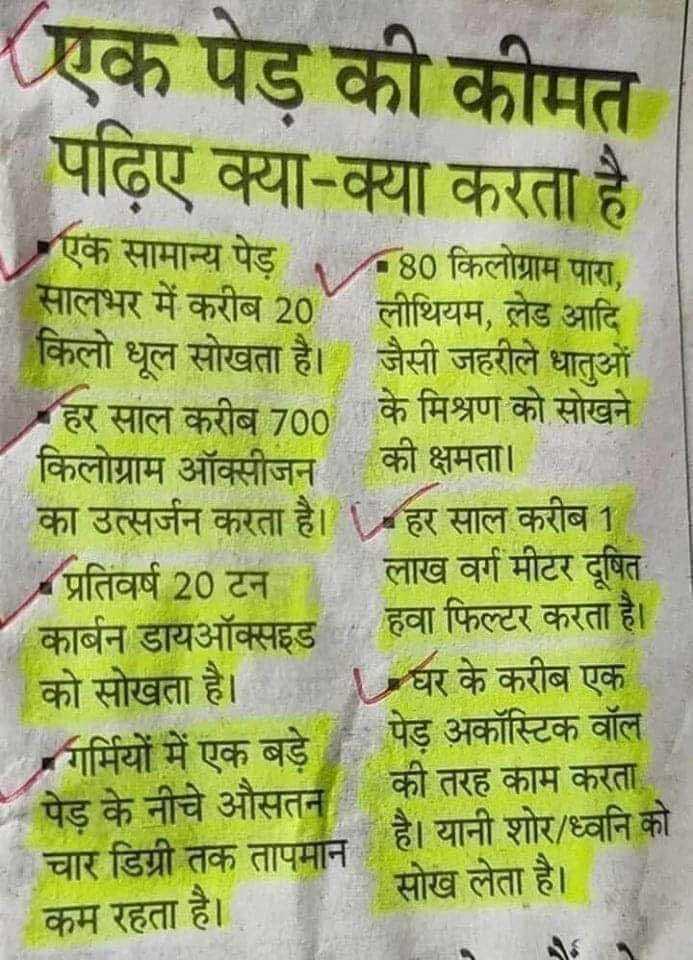 एक पेड़ की कीमत
पढ़िए क्या-क्या करता है
▪ एक सामान्य पेड़
सालभर में करीब 20
किलो धूल सोखता है।
▪ हर साल करीब 700
किलोग्राम ऑक्सीजन
का उत्सर्जन करता है।
▪ प्रतिवर्ष 20 टन
कार्बन डायऑक्सइड
को सोखता है।
▪ गर्मियों में एक बड़े
पेड़ के नीचे औसतन
चार डिग्री तक तापमान
कम रहता है।
▪ 80 किलोग्राम पारा,
लीथियम, लेड आदि
जैसी जहरीले धातुओं
के मिश्रण को सोखने
की क्षमता।
▪ हर साल करीब 1
लाख वर्ग मीटर दूषित
हवा फिल्टर करता है।
▪ घर के करीब एक
पेड़ अकॉस्टिक वॉल
की तरह काम करता
है। यानी शोर/ध्वनि को
सोख लेता है।